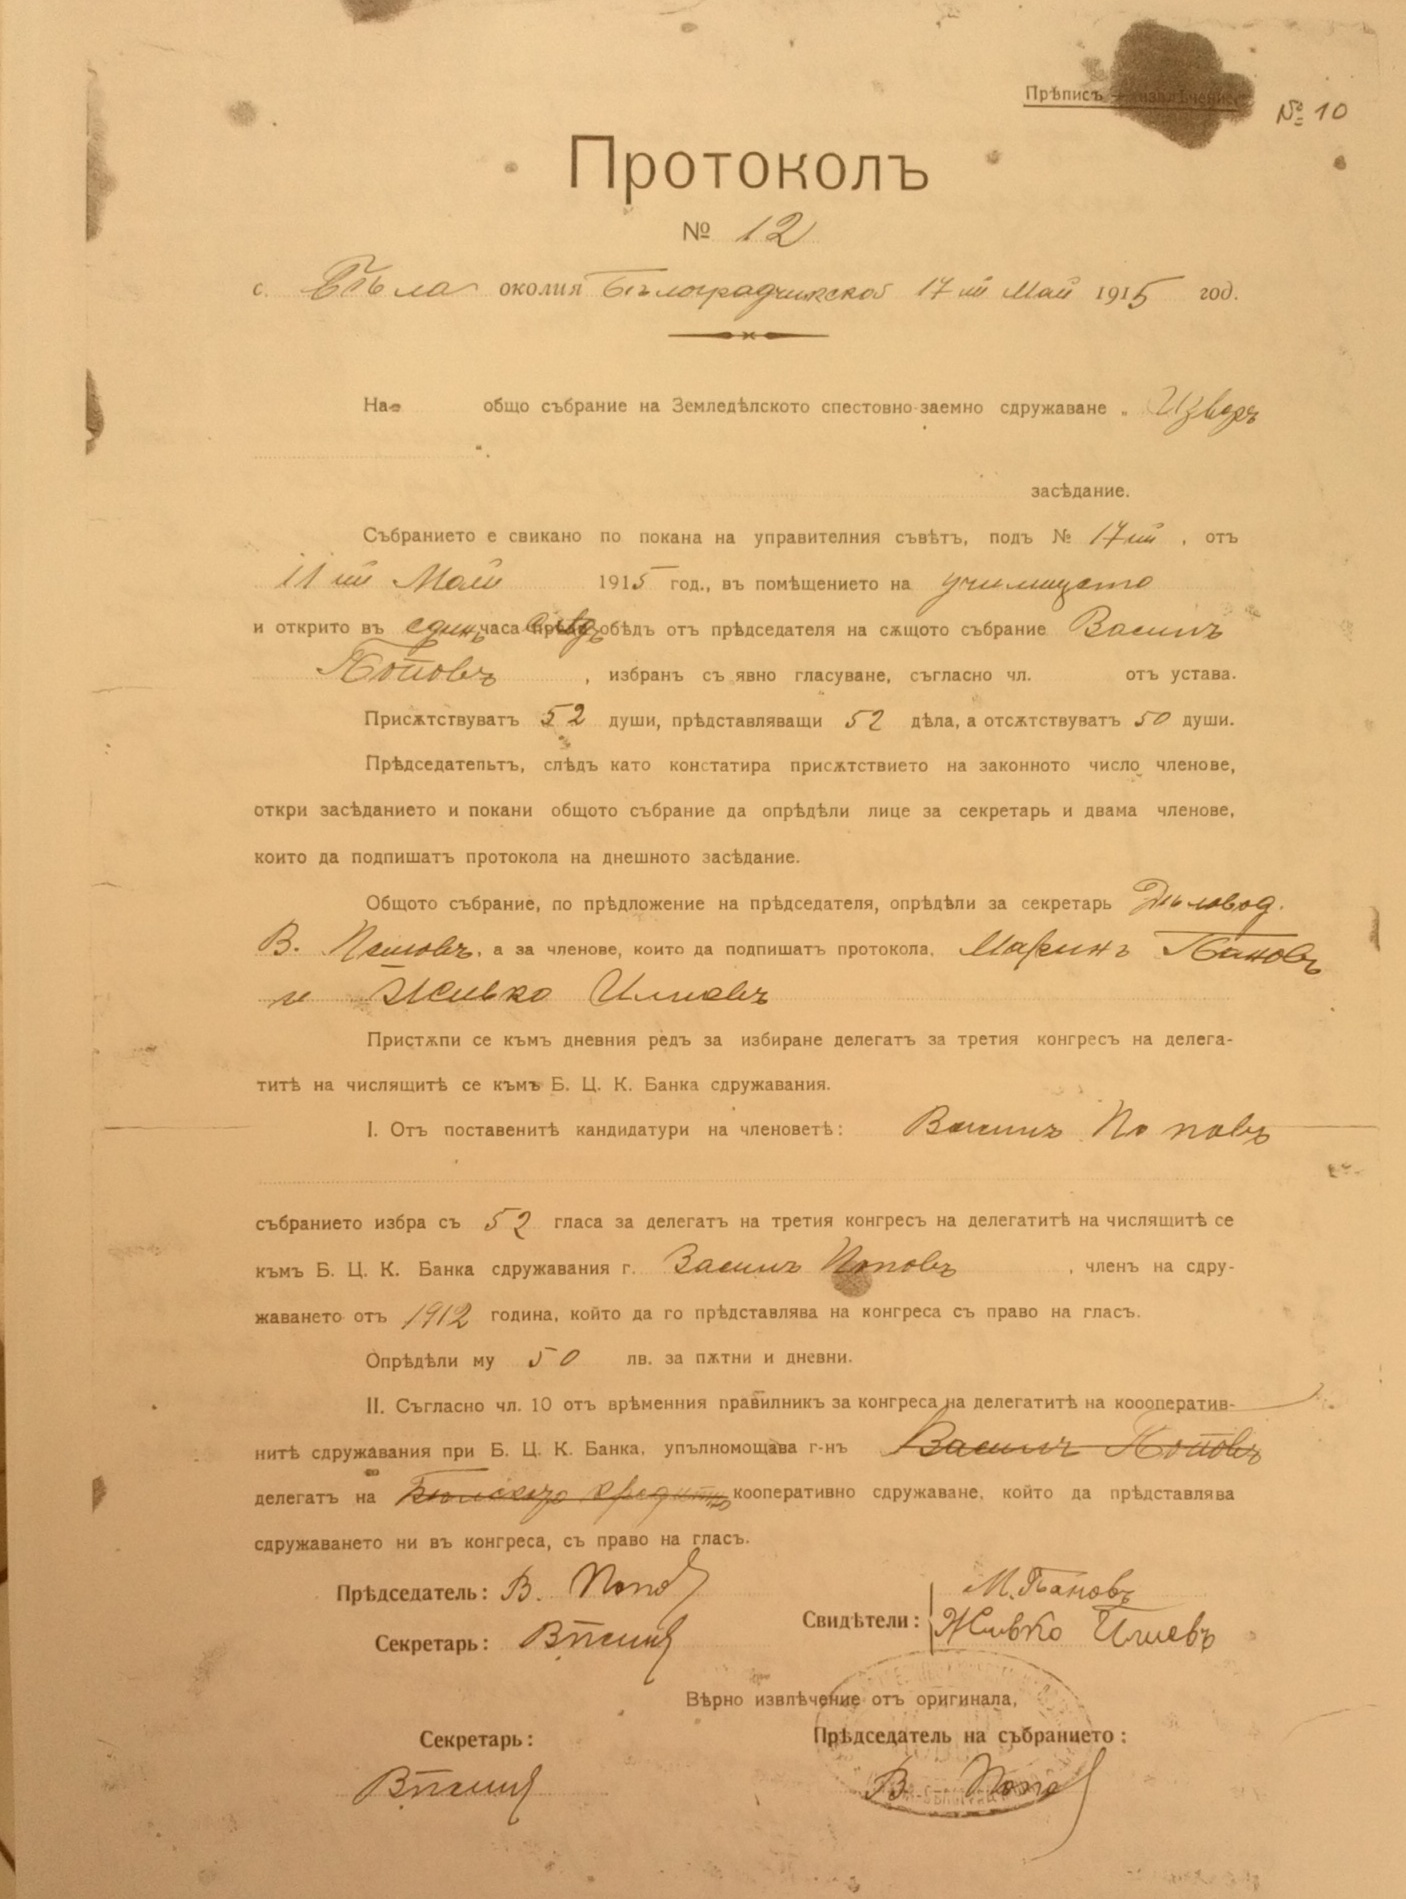 Прѣписъ — извлѣчение
№ 10
Протоколъ
№ 12
с. Бѣла околия Бѣлоградчикской 17 ий Май 1915 год.
На общо събрание на Земледѣлското спестовно-заемно сдружаване „ Изворъ
".
засѣдание.
Събранието е свикано по покана на управителния съвѣтъ, подъ № 17 ий, отъ
11 ий Май 1915 год., въ помѣщението на училището
и открито въ единъ часа слѣдъ обѣдъ отъ прѣдседателя на сѫщото събрание Василъ
Поповъ, избранъ съ явно гласуване, съгласно чл. отъ устава.
Присѫтствуватъ 52 души, прѣдставляващи 52 дѣла, а отсѫтствуватъ 50 души.
Прѣдседательтъ, слѣдъ като констатира присѫтствието на законното число членове,
откри засѣданието и покани общото събрание да опрѣдѣли лице за секретарь и двама членове,
които да подпишатъ протокола на днешното засѣдание.
Общото събрание, по прѣдложение на прѣдседателя, опрѣдѣли за секретарь Дѣловод.
В. , а за членове, които да подпишатъ протокола, Маринъ Бановъ
и Живко Илиевъ
Пристѫпи се къмъ дневния редъ за избиране делегатъ за третия конгресъ на делега-
титѣ на числящитѣ се къмъ Б. Ц. К. Банка сдружавания.
I. Отъ поставенитѣ кандидатури на членоветѣ: Василъ Поповъ
събранието избра съ 52 гласа за делегатъ на третия конгресъ на делегатитѣ на числящитѣ се
къмъ Б. Ц. К. Банка сдружавания г. Василъ Поповъ, членъ на сдру-
жаването отъ 1912 година, който да го прѣдставлява на конгреса съ право на гласъ.
Опрѣдѣли му 50 лв. за пѫтни и дневни.
II. Съгласно чл. 10 отъ врѣменния правилникъ за конгреса на делегатитѣ на коооператив-
нитѣ сдружавания при Б. Ц. К. Банка, упълномощава г-нъ Василъ Поповъ
делегатъ на кооперативно сдружаване, който да прѣдставлява
сдружаването ни въ конгреса, съ право на гласъ.
Прѣдседатель: В. Попов
Секретарь:
Свидѣтели: М. Бановъ
Живко Илиевъ
Вѣрно извлѣчение отъ оригинала,
Секретарь:
Прѣдседатель на събранието:
В. Попов